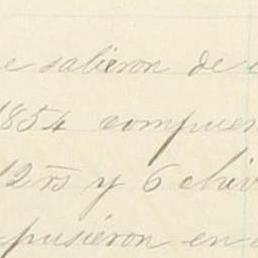 e salieron de
1854 compues
12 rs y 6 chiv
pusieron en